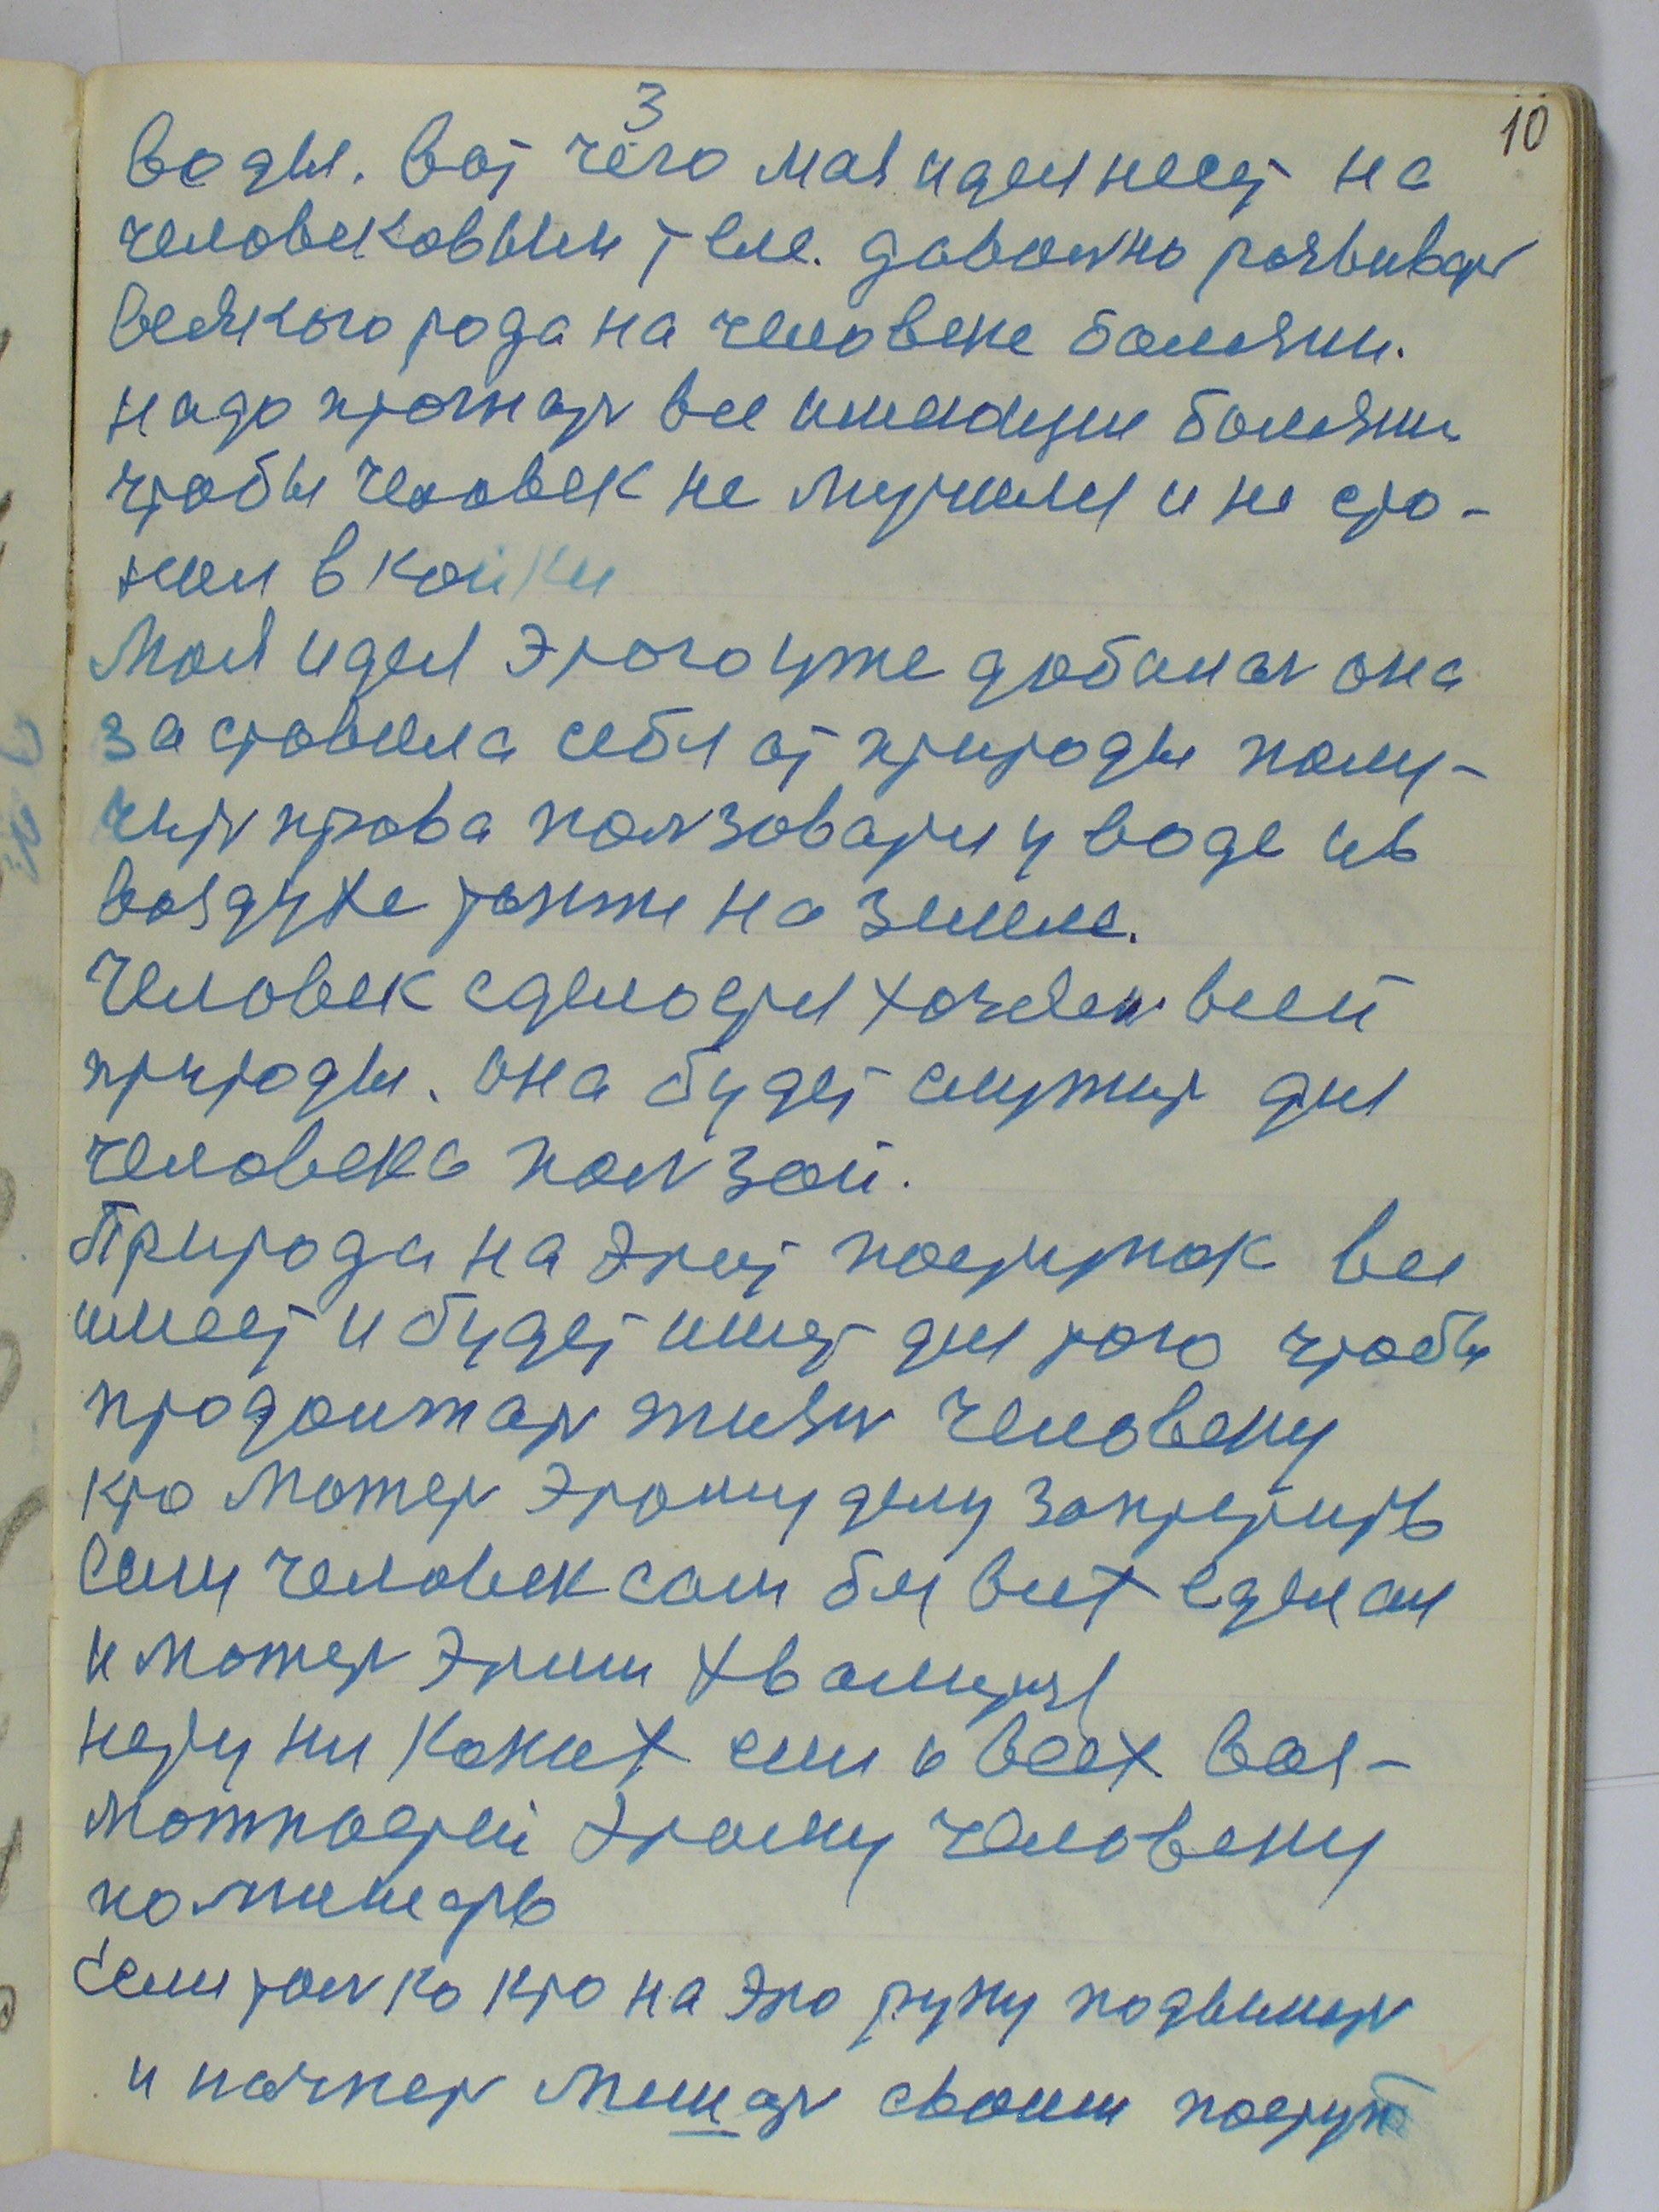 3
10
воды. вот чего мая идея несет на
человековым теле. давольно развиват
всякого рода на человеке болезни.
надо прогнат все имеющие болезни
чтобы человек не мучился и не сто-
нал в койки
Моя идея этого уже добилас она
заставила себя от природы полу-
чит права ползоватся у воде ив
воздухе также на земле.
Человек сделается хозяен всей
природы. она будет служит для
человека ползой.
Природа на этот поступок все
имеет и будет имет для того чтобы
продолжат жизн человеку
кто может этому делу запретить
Если человек сам бы вих сделал
и может этим хвалится
нету ни каких сил и всех воз-
можностей этому человеку
помишать
Если толко кто на это руку подымет
и начнет мишат своим поступ